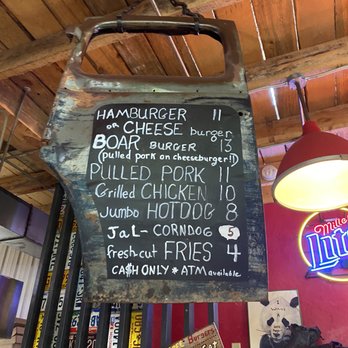 HAMBURGER 11
OR CHEESE burger
BOAR BURGER 13
(pulled pork on cheeseburger!!)
PULLED PORK 11
Grilled CHICKEN 10
Jumbo HOTDOG 8
JaL-CORNDOG 5
fresh-cut FRIES 4
CA$H ONLY * ATM available